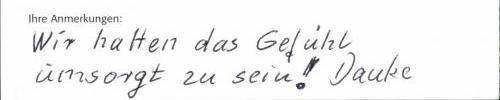 Ihre Anmerkungen:
Wir hatten das Gefühl
umsorgt zu sein! Danke